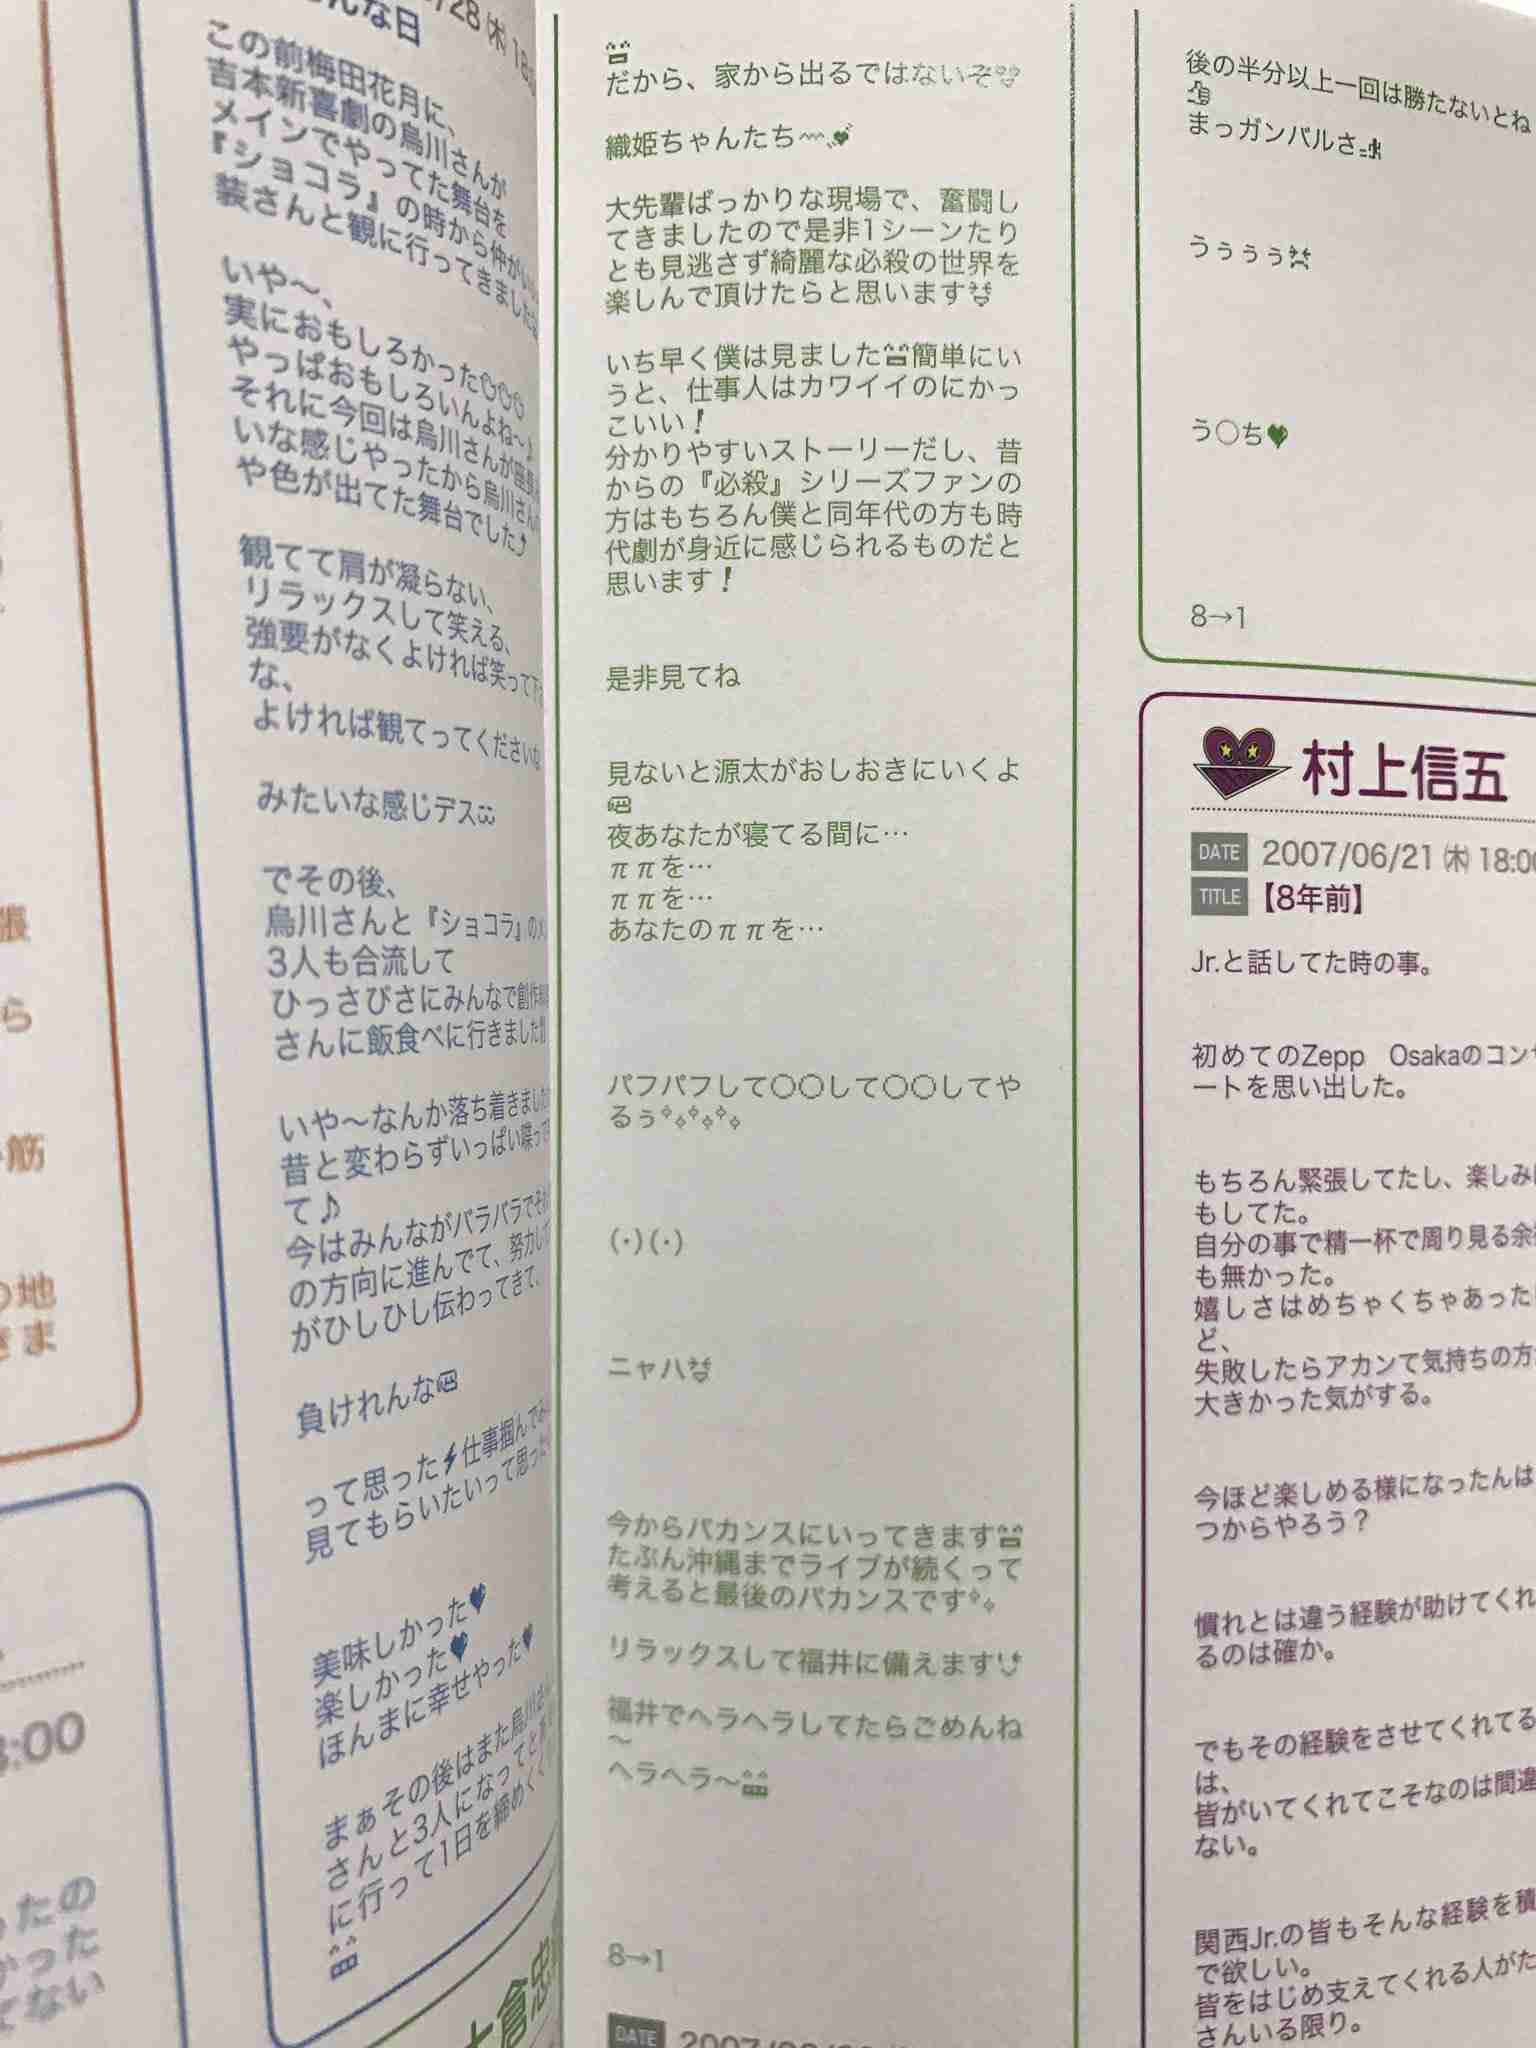 /28 ㈭ 18:
んな日
この前梅田花月に、
吉本新喜劇の烏川さんが
メインでやってた舞台を
『ショコラ』の時から仲が
装さんと観に行ってきました
いや〜、
実におもしろかった
やっぱおもしろいんよね〜♪
それに今回は烏川さんが座長
いな感じやったから烏川さん
や色が出てた舞台でした
観てて肩が凝らない、
リラックスして笑える、
強要がなくよければ笑って下
な、
よければ観てってくださいな
みたいな感じデス
でその後、
烏川さんと『ショコラ』の
3人も合流して
ひっさびさにみんなで創作
さんに飯食べに行きました
いや〜なんか落ち着きました
昔と変わらずいっぱい喋って
て♪
今はみんながバラバラでそれ
の方向に進んでて、努力して
がひしひし伝わってきて、
負けれんな
って思った⚡仕事掴んで
見てもらいたいって思った
美味しかった♥
楽しかった♥
ほんまに幸せやった♥
まぁその後はまた烏川さん
さんと3人になって
に行って1日を締めく
大倉忠
張
ら
筋
の地
きま
3:00
ったの
かった
てない
だから、家から出るではないぞ
織姫ちゃんたち〰💘
大先輩ばっかりな現場で、奮闘し
てきましたので是非1シーンたり
とも見逃さず綺麗な必殺の世界を
楽しんで頂けたらと思います
いち早く僕は見ました簡単にい
うと、仕事人はカワイイのにかっ
こいい！
分かりやすいストーリーだし、昔
からの『必殺』シリーズファンの
方はもちろん僕と同年代の方も時
代劇が身近に感じられるものだと
思います！
是非見てね
見ないと源太がおしおきにいくよ
夜あなたが寝てる間に…
ππを…
ππを…
あなたのππを…
パフパフして〇〇して〇〇してや
るぅ
(・)(・)
ニャハ
今からバカンスにいってきます
たぶん沖縄までライブが続くって
考えると最後のバカンスです
リラックスして福井に備えます
福井でヘラヘラしてたらごめんね
〜
ヘラヘラ〜
8→1
DATE
後の半分以上一回は勝たないとね
まっガンバルさ
うぅぅぅ
う〇ち♥
8→1
村上信五
DATE 2007/06/21 ㈭ 18:00
TITLE 【8年前】
Jr.と話してた時の事。
初めてのZepp Osakaのコンサ
ートを思い出した。
もちろん緊張してたし、楽しみに
もしてた。
自分の事で精一杯で周り見る余裕
も無かった。
嬉しさはめちゃくちゃあったけ
ど、
失敗したらアカンて気持ちの方が
大きかった気がする。
今ほど楽しめる様になったんは
つからやろう？
慣れとは違う経験が助けてくれ
るのは確か。
でもその経験をさせてくれてる
は、
皆がいてくれてこそなのは間違
ない。
関西Jr.の皆もそんな経験を積
で欲しい。
皆をはじめ支えてくれる人がた
さんいる限り。